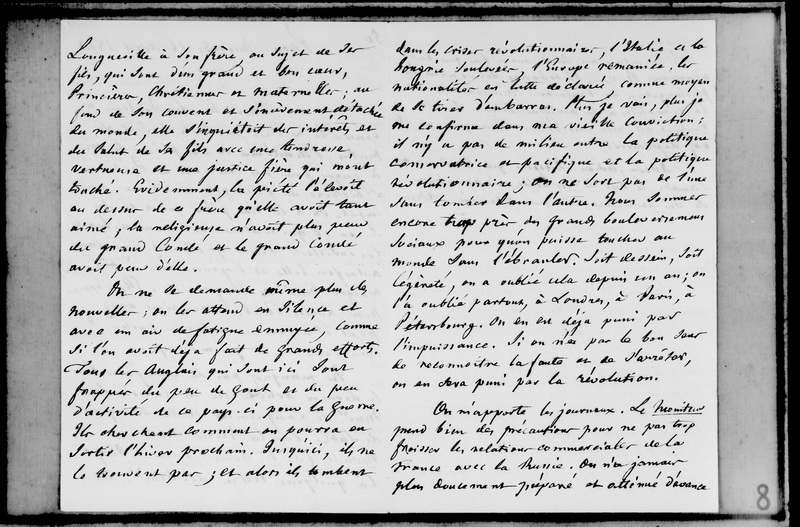 Longueville à son frère, au sujet de ses
fils, qui sont d'un grand et bon cœur,
Princière, Chrétienne et maternelle; au
fond de son couvent et sincèrement détachée
du monde, elle s'inquiétoit des intérêts et
du salut de ses fils avec une tendresse
vertueuse et une justice fière qui m'ont
touché. Evidemment, la piété l'élevoit
au dessus de ce frère qu'elle avoit tant
aimé; la religieuse n'avoit plus peur
du grand Condé et le grand Condé
avoit peur d'elle.
On ne se demande même plus de
nouvelles; on les attend en silence et
avec un air de fatigue ennuyée, comme
si l'on avoit déja fait de grands efforts.
Tous les Anglais qui sont ici sont
frappés du peu de gout et du peu
d'activité de ce pays-ci pour la guerre.
Ils cherchent comment on pourra en
sortir l'hiver prochain. Jusqu'ici, ils ne
le trouvent pas; et alors ils tombent
dans les crises révolutionnaires, l'Italie et la
hongrie soulevées, l'Europe remaniée, les
nationalités en lutte déclarée, comme moyen
de se tirer d'embarras. Plus je vais, plus je
me confirme dans ma vieille conviction;
il n'y a pas de milieu entre la politique
conservatrice et pacifique et la politique
révolutionnaire; on ne sort pas de l'une
sans tomber dans l'autre. Nous sommes
encore trop près des grands bouleversemens
sociaux pour qu'on puisse toucher au
monde sans l'ébranler. Soit dessein, soit
légèreté, on a oublié cela depuis un an; on
l'a oublié partout, à Londres, à Paris, à
Pétersbourg. On en est déja puni par
l'impuissance. Si on n'a pas le bon sens
de reconnoître la faute et de s'arrêter,
on en sera puni par la révolution.
On m'apporte les journaux. Le Moniteur
prend bien des précautions pour ne pas trop
froisser les relations commerciales de la
France avec la Russie. On n'a jamais
plus doucement préparé et atténué d'avance
8